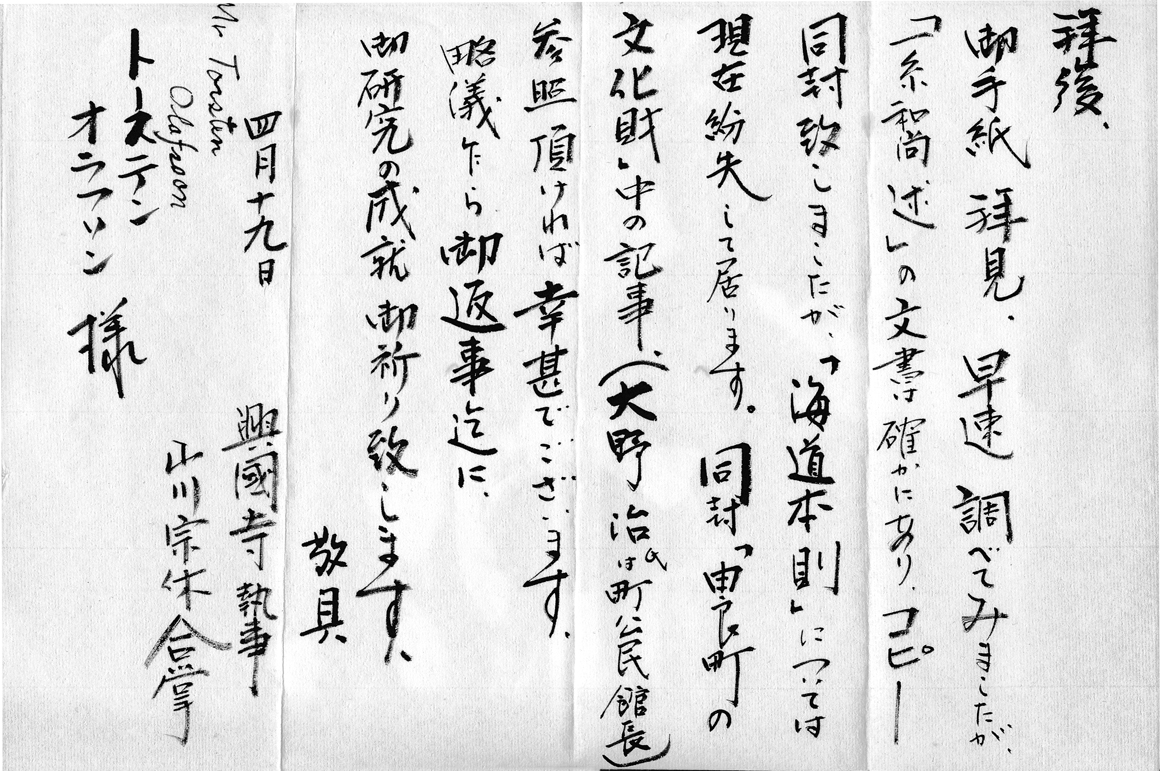 拝復、
御手紙 拝見、早速 調べてみましたが、
「一糸和尚 述」の文書は確かにあり、コピー
同封致しましたが、「海道本則」については
現在紛失して居ります。同封「由良町の
文化財」中の記事(大野 治氏は町公民館長)
参照頂ければ幸甚でございます、
略儀乍ら御返事迄に、
御研究の成就 御祈り致します、
敬具、
四月十九日
興國寺 執事
山川宗休 合掌
Mr Torsten
Olafsson
トーステン
オラフソン 様